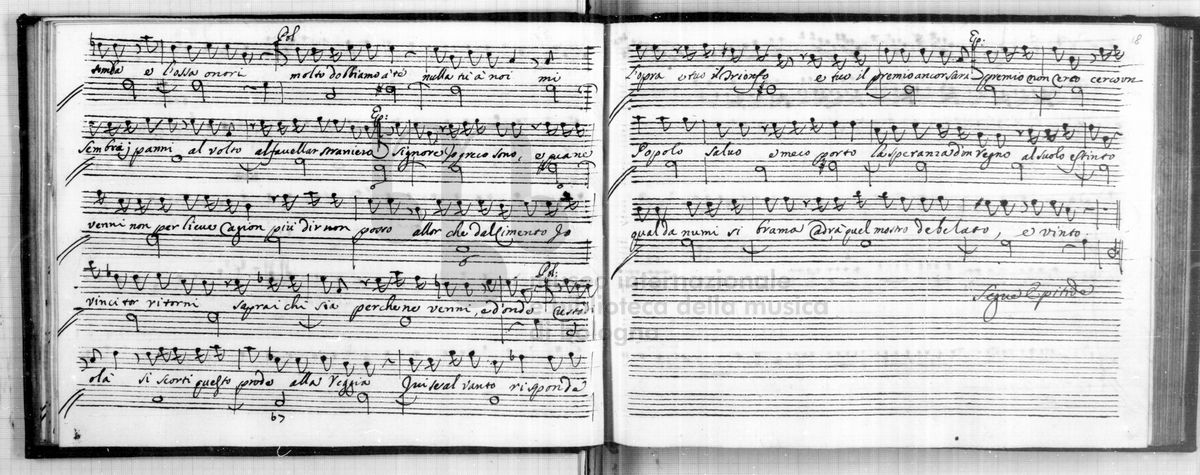 Pol
tomba e l'ossa onori molto dobbiamo à te nulla tu à noi mi
Ep:
sembra j panni al volto al favellar straniero signore Io greco sono, e quane
venni non per lieve Cagion più dir non posso allor che dal Cimento Io
Pol:
vincitor ritorni saprai chi sia perche ne venni, e d'onde Custodi
olà si scorti questo prode alla Reggia Qui se al vanto risponde
18
Ep:
l'opra e tuo il Trionfo e tuo il premio ancor sarà premio non Cerco cerco un
Popolo salvo e meco porto la speranza di un regno al suolo estinto
qual da numi si brama Cadrà quel mostro debelato, e vinto
Segue Epitide
museo internazionale
e biblioteca della musica
di bologna